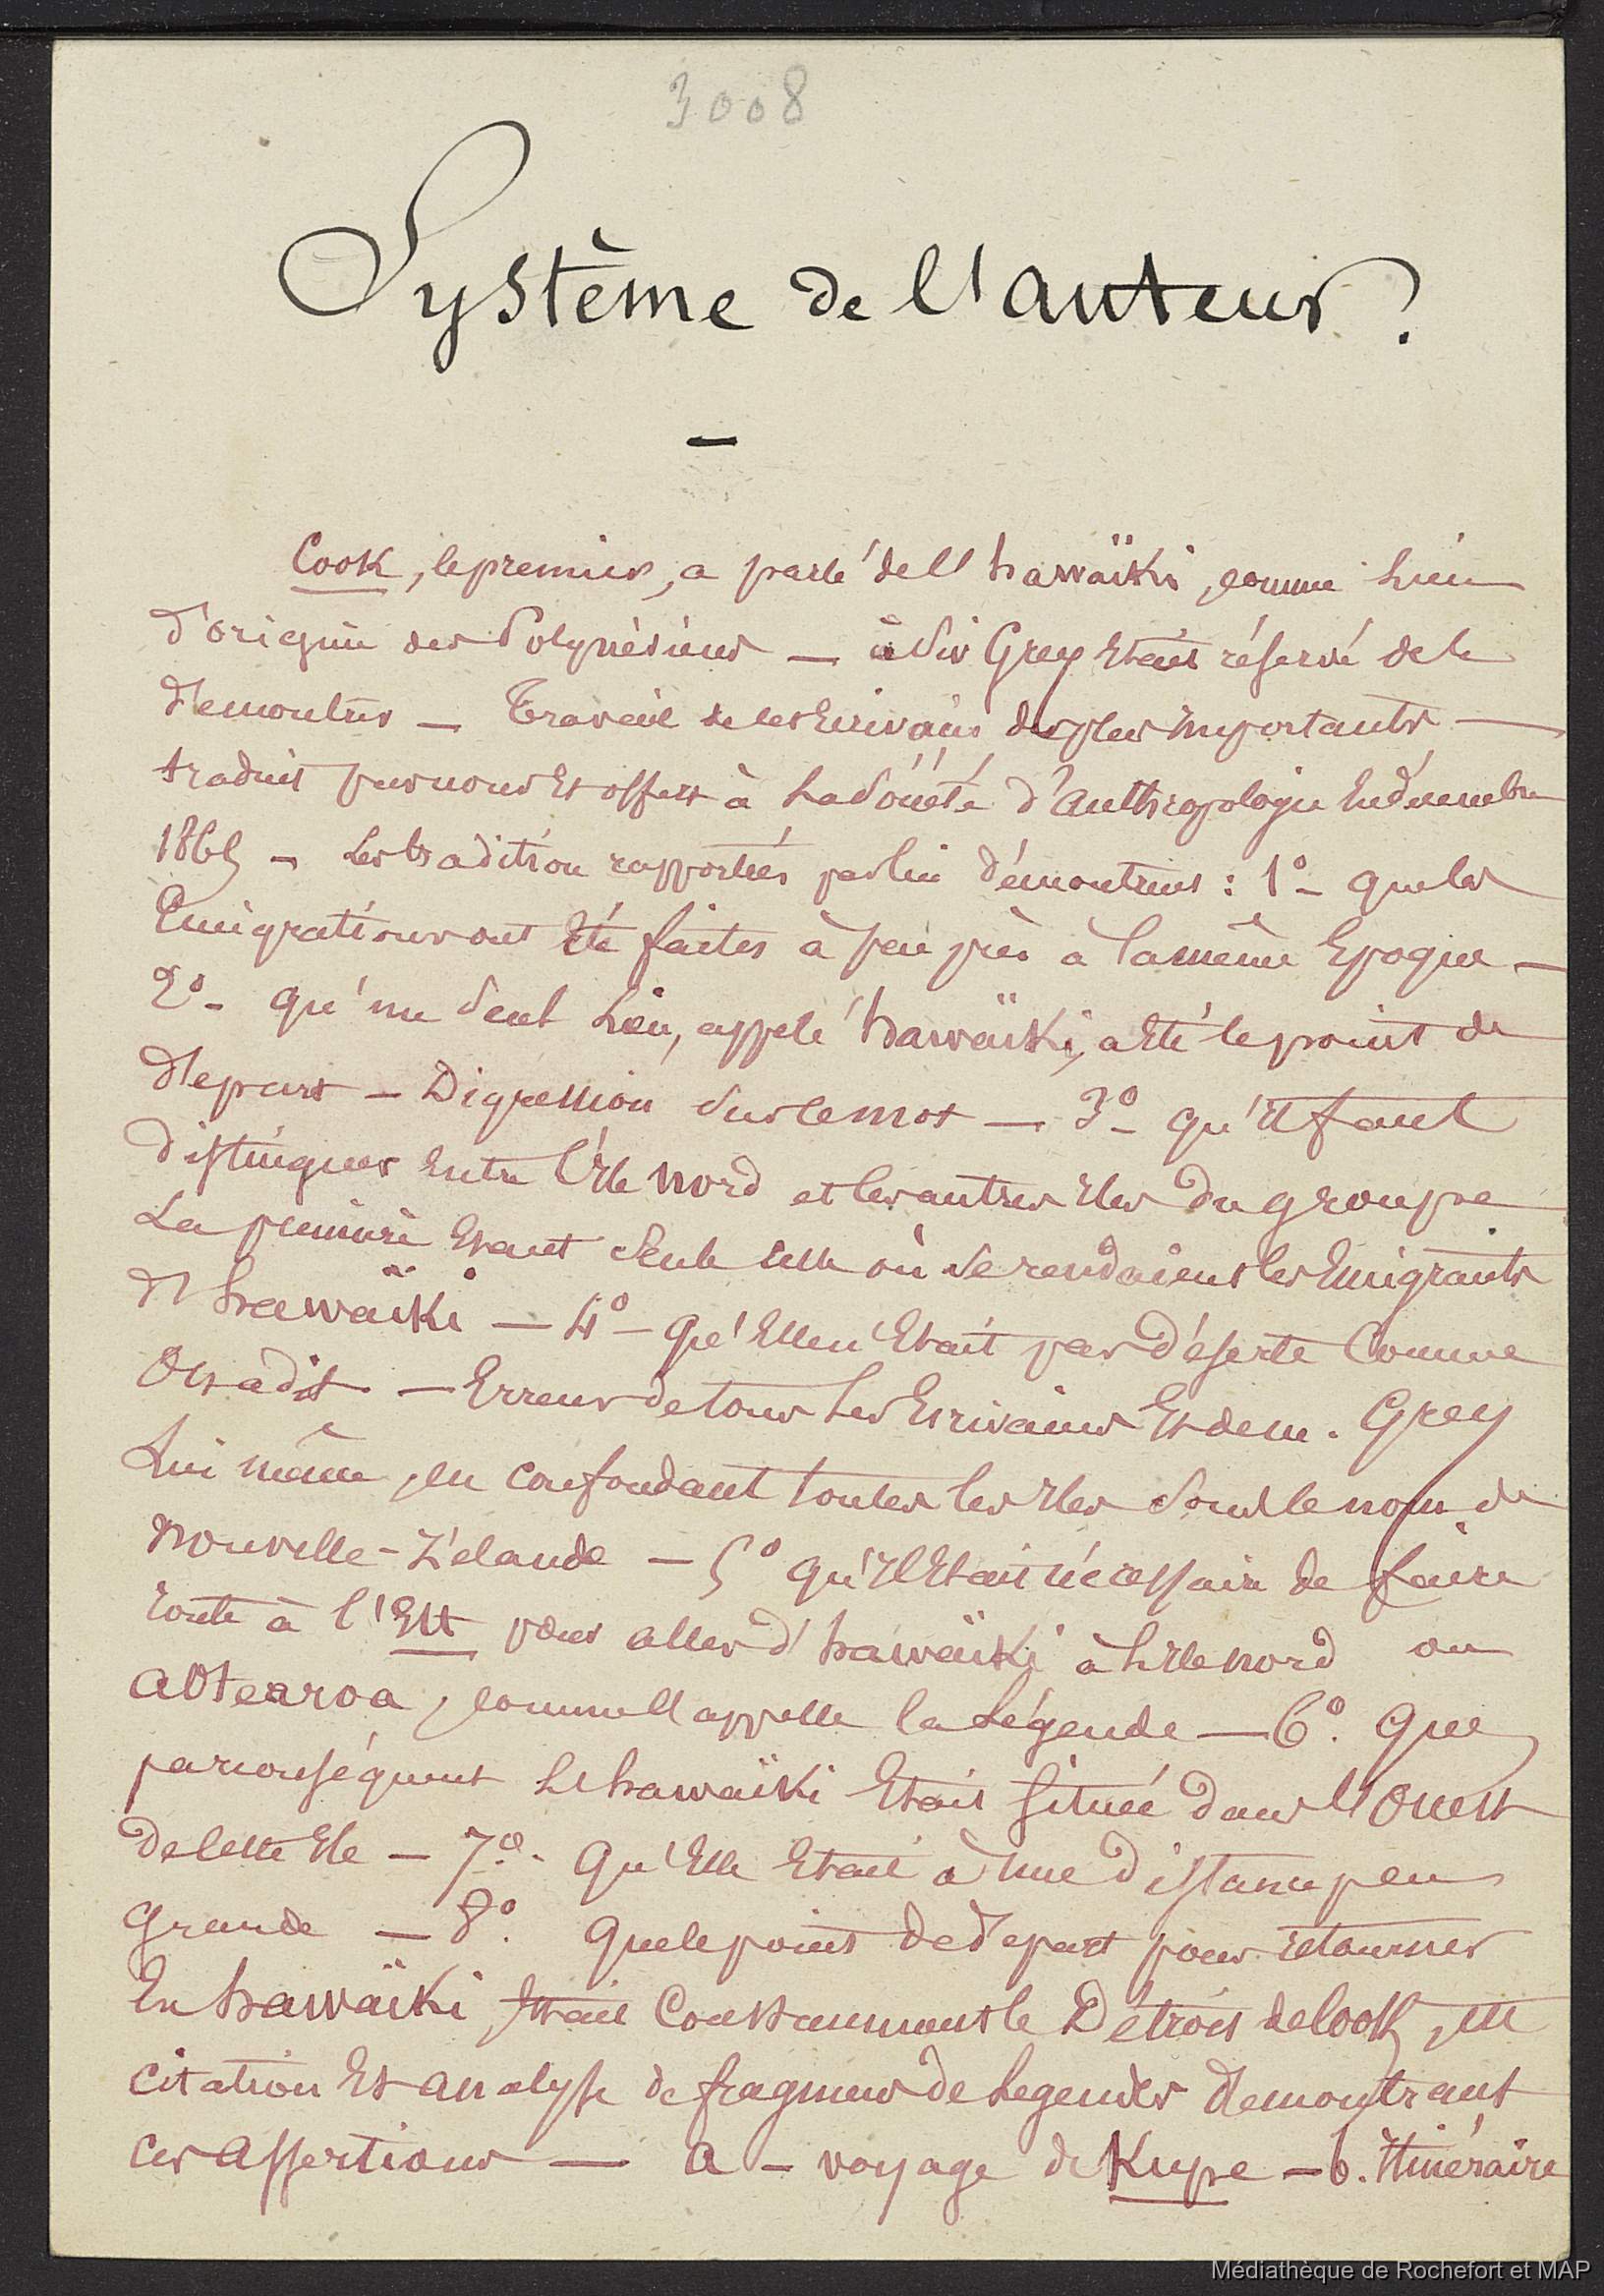 3008
Système de l'auteur ?
—
Cook, le premier, a parlé de l'hawaïki, comme lieu
d'origine des Polynésiens — à Sir Grey était réservé de le
démontrer — Travail de cet Ecrivain des plus importants —
traduit par nous et offert à la Société d'anthropologie En décembre
186
— Les tradition rapportées par lui démontrent : 1° — que les
Emigrations ont Eté faites à peu près à la même Epoque —
2° — qu'un seul lieu, appelé hawaïki, a Eté le point de
départ — Digression sur le mot — 3° — qu'il faut
distinguer Entre l'Ile Nord et les autres Iles du groupe
La première Etant seule celle où se rendaient les Emigrants
d'hawaïki — 4° — qu'Elle n'Etait pas déserte Comme
On a dit — Erreur de tous les Ecrivains Et de m. Grey
Lui même, en confondant toutes les Iles sous le nom de
Nouvelle-Zélande — 5° qu'Il Etait nécessaire de faire
route à l'Est pour aller d'hawaïki à L'Ile Nord ou
Aotearoa, comme l'appelle la Légende — 6°. que
par conséquent L'hawaïki Etait située dans l'Ouest
de cette Ile — 7°. qu'Elle Etait à une distance peu
grande — 8°. que le point de départ pour retourner
En hawaïki Etait Constamment le Détroit de Cook,
citation Et analyse de fragmens de Légendes démontrant
ces assertions — a — voyage de Kupe — b. Itinéraire
Médiathèque de Rochefort et MAP